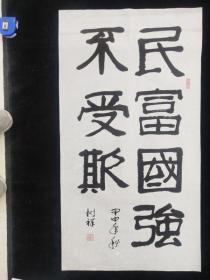 民富國強
不受欺
甲申年秋
树祥